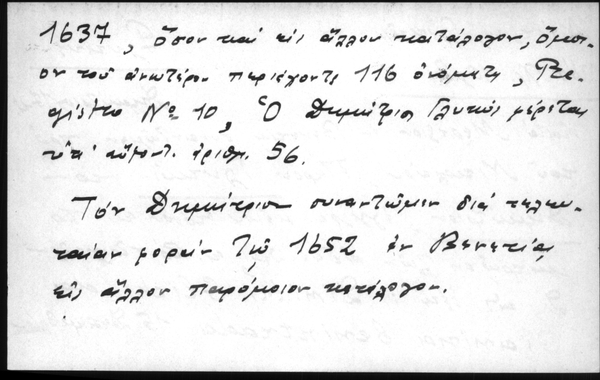 1637, ὅσον καί εἰς ἄλλον κατάλογον, ὅμοι-
ον τοῦ ἀνωτέρου περιέχοντα 116 ὀνόματα, Re-
gistro Nº 10, Ὁ Δημήτριος Γλυκύς φέρεται
ὑπ' αὔξοντ. ἀριθμ. 56.
Τόν Δημήτριον συναντῶμεν διά τελευ-
ταίαν φοράν τῷ 1652 ἐν Βενετίᾳ
εἰς ἄλλον παρόμοιον κατάλογον.